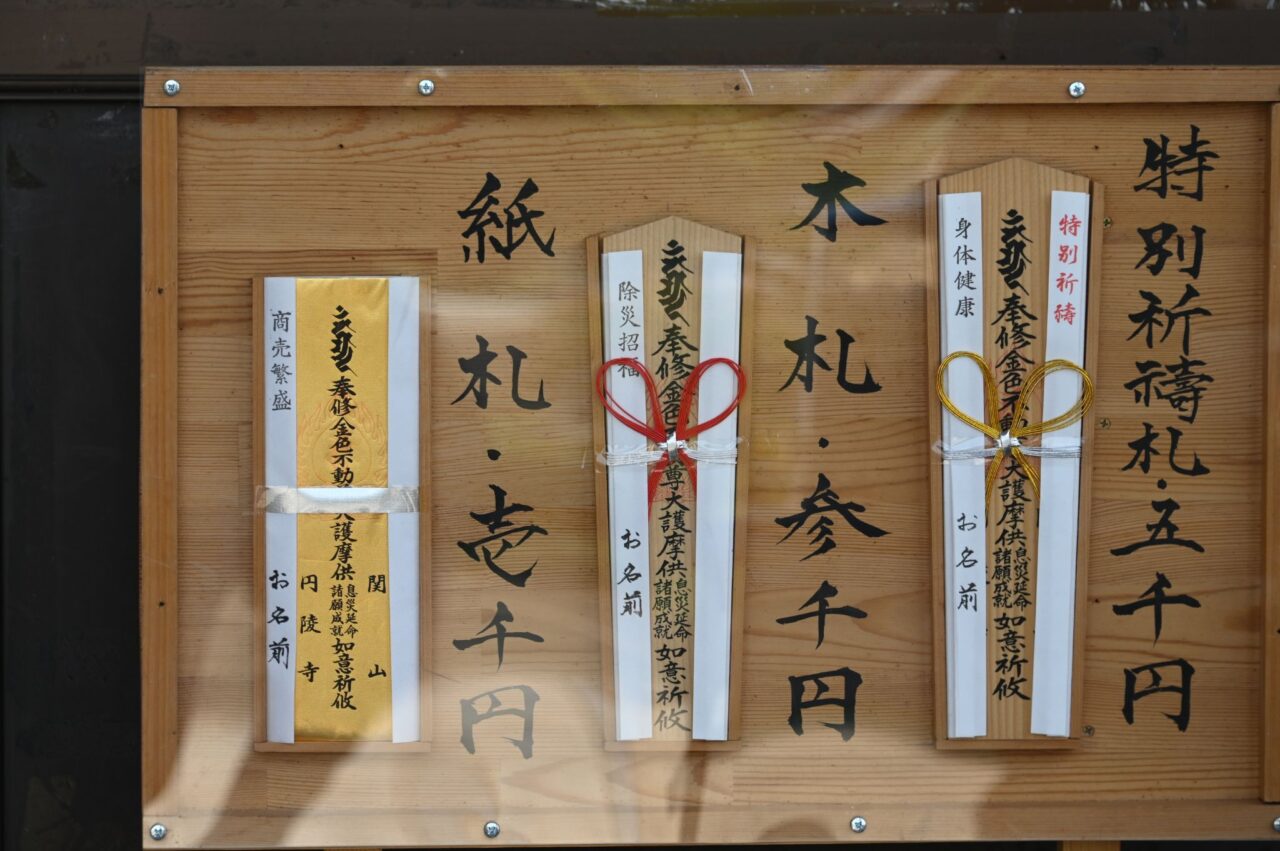 特別祈禱札・五千円
特別祈禱
奉修金色不動
大護摩供
息災延命
諸願成就
如意祈攸
身体健康
お名前
木札・参千円
奉修金色不
尊大護摩供
息災延命
諸願成就
如意祈攸
除災招福
お名前
紙札・壱千円
関山
奉修金色不動
大護摩供
息災延命
諸願成就
如意祈攸
円陵寺
商売繁盛
お名前